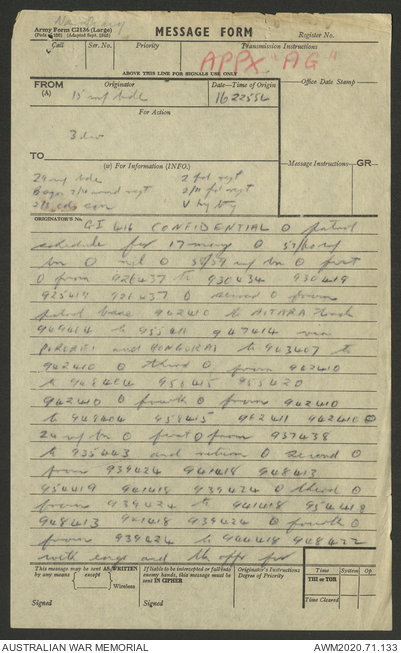 Army Form C2136 (Large)
MESSAGE FORM
Register No.
Call
Ser. No.
Priority
Transmission Instructions
APPX "AG"
ABOVE THIS LINE FOR SIGNALS USE ONLY
FROM
(A)
Originator
15 inf bde
Date—Time of Origin
162255L
Office Date Stamp
For Action
3 div
TO
(W) For Information (INFO.)
Message Instructions
GR
29 inf bde 2 fd regt
2/11 fd regt
V hy bty
ORIGINATOR'S No.
GI 416 CONFIDENTIAL O patrol
schedule for 17 may O 57/60 inf
bn O nil O 58/59 inf bn O first
O from 926437 to 930434 930419
925419 926437 O second O from
patrol base 942410 to AITARA track
to 955411 947414 via
POROREI and to 943407 to
942410 O third O from 942410
to 948404 958415 955420
942410 O fourth O from 942410
to 949404 958415 962411 942410 O
24 inf bn O first O from 937438
to 935443 and return O second O
from 939424 941418 948413
954419 941418 939424 O third O
from 939424 to 941418 954419
948413 941418 939424 O fourth O
from 939424 to 944418 948422
with engr and tk offr for
This message may be sent AS WRITTEN
by any means (except
Wireless
If liable to be intercepted or fall into
enemy hands, this message must be
sent IN CIPHER
Originator's Instructions
Degree of Priority
Time
System
Op.
THI or TOR
Time Cleared
Signed
Signed
AUSTRALIAN WAR MEMORIAL
AWM2020.71.133